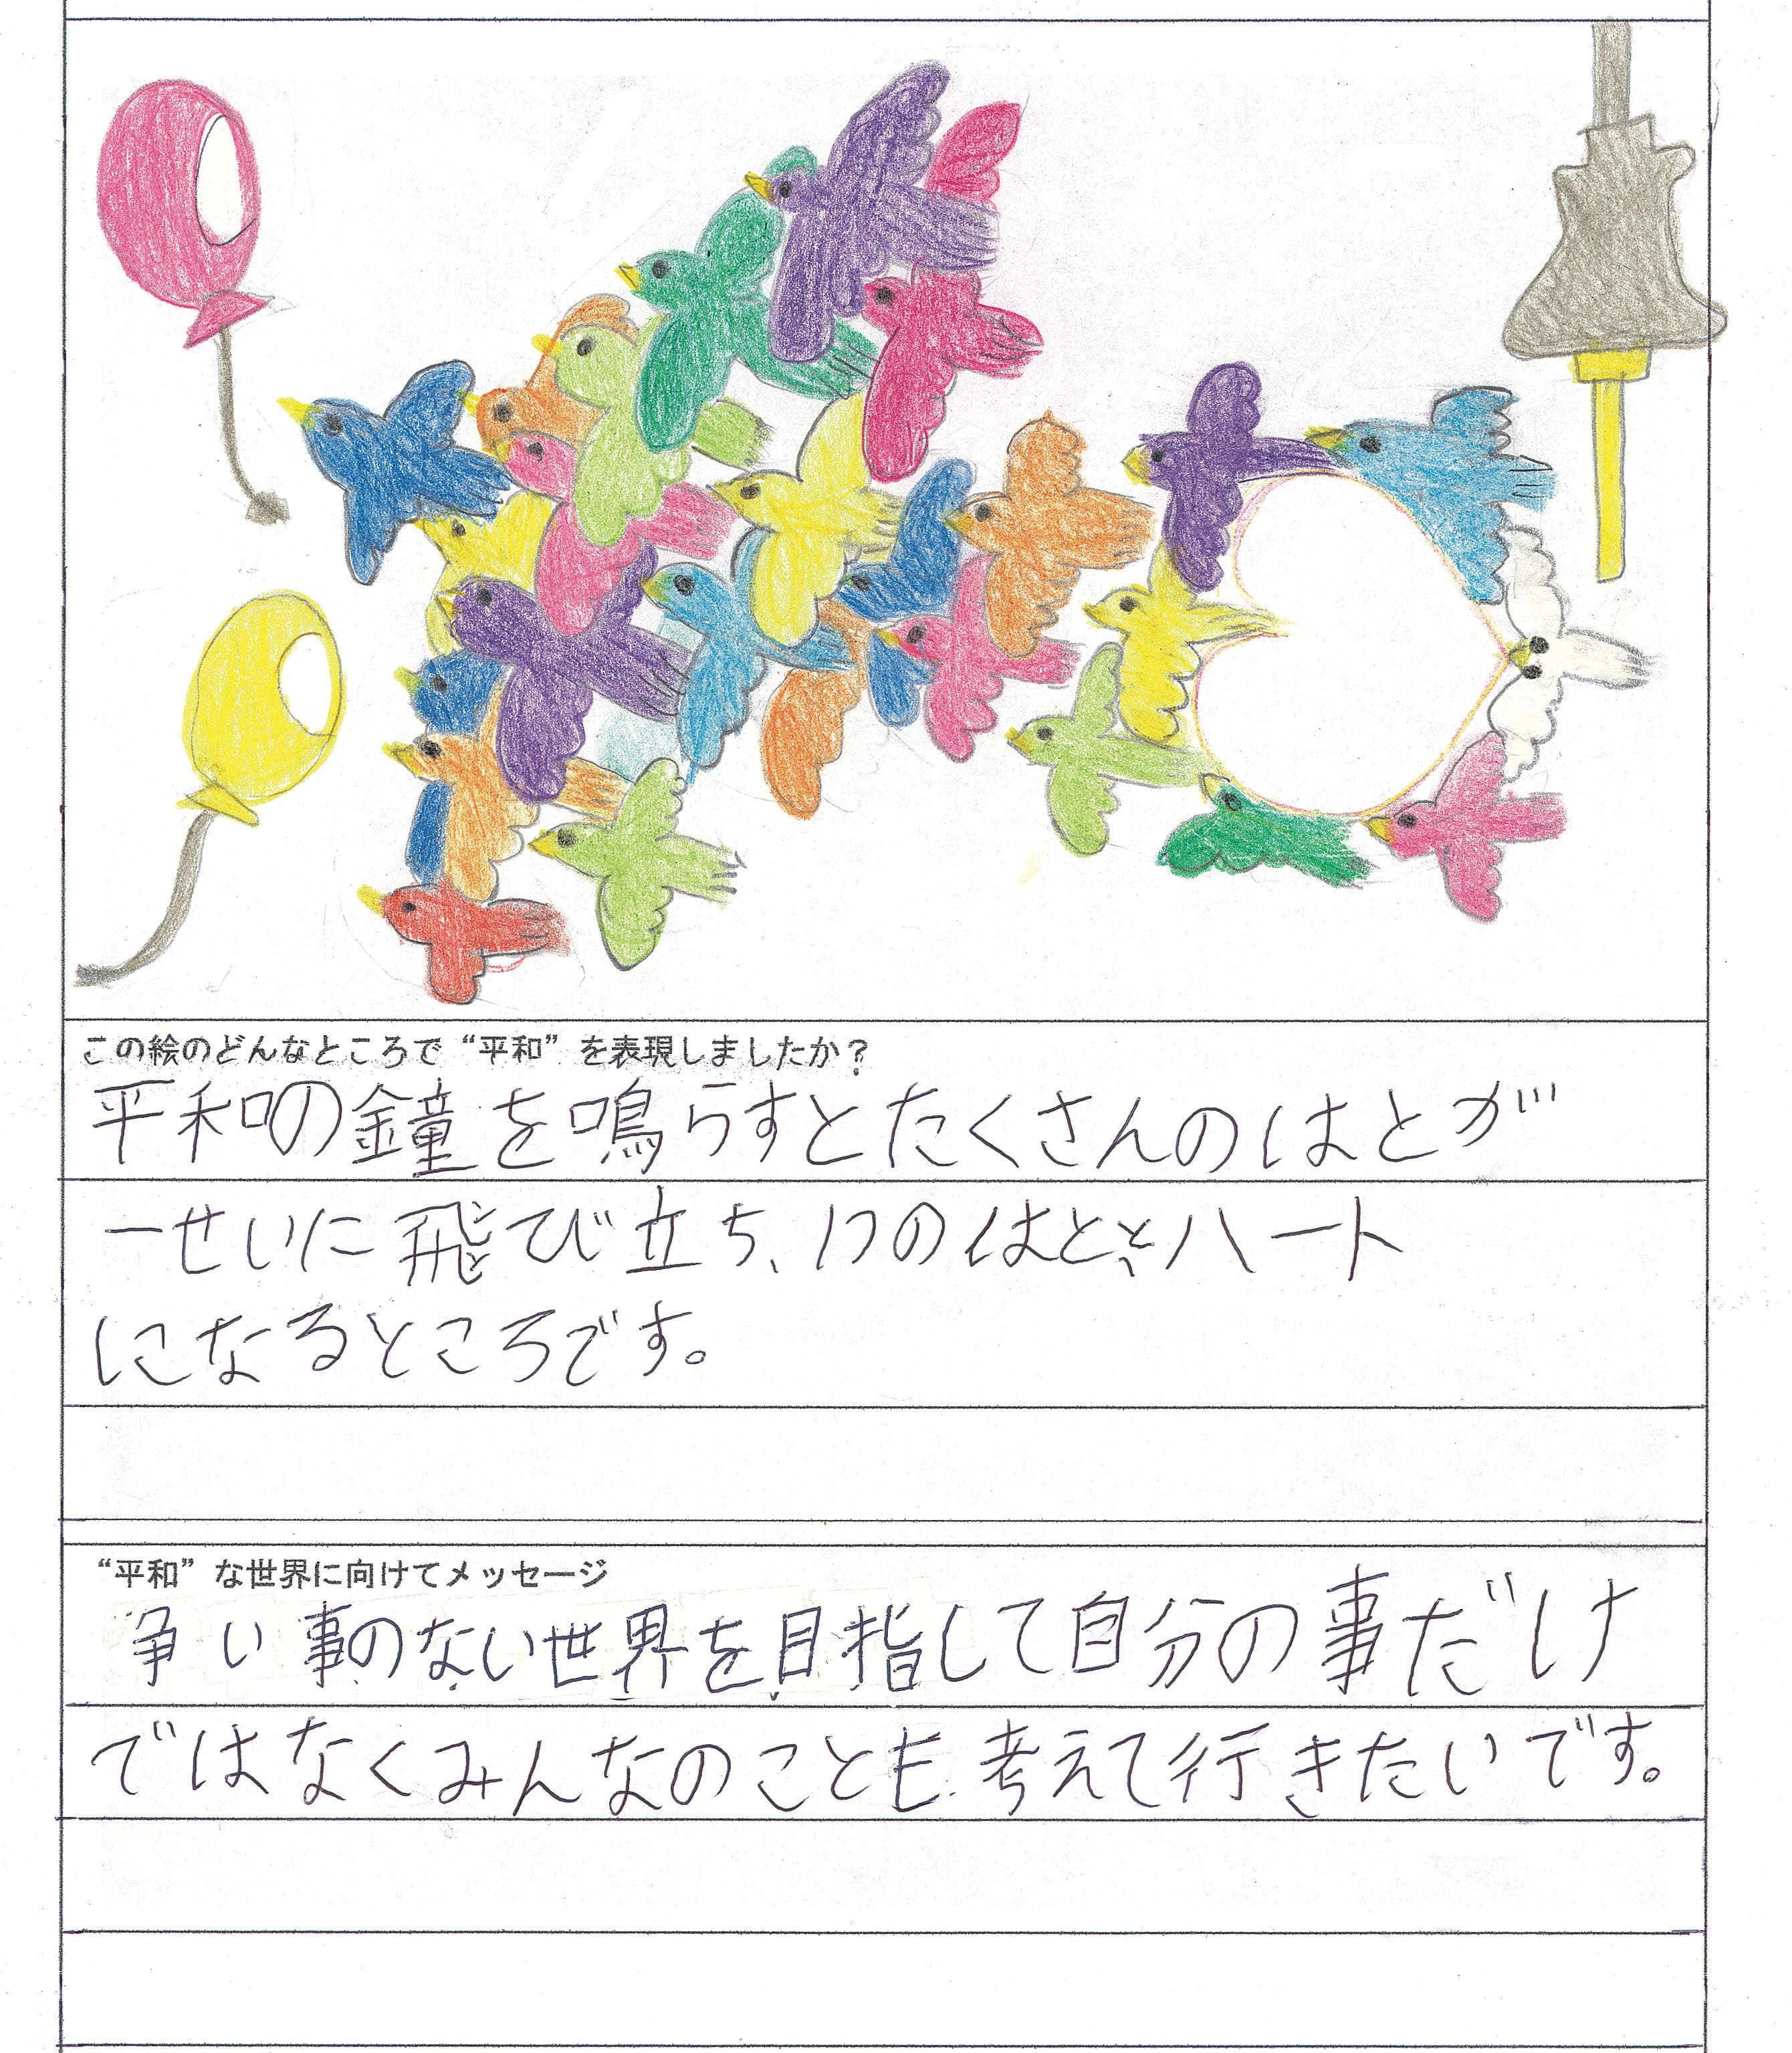 この絵のどんなところで“平和”を表現しましたか？
平和の鐘を鳴らすとたくさんのはとが
一せいに飛び立ち、1つのはととハート
になるところです。
“平和”な世界に向けてメッセージ
争い事のない世界を目指して自分の事だけ
ではなくみんなのことも考えて行きたいです。